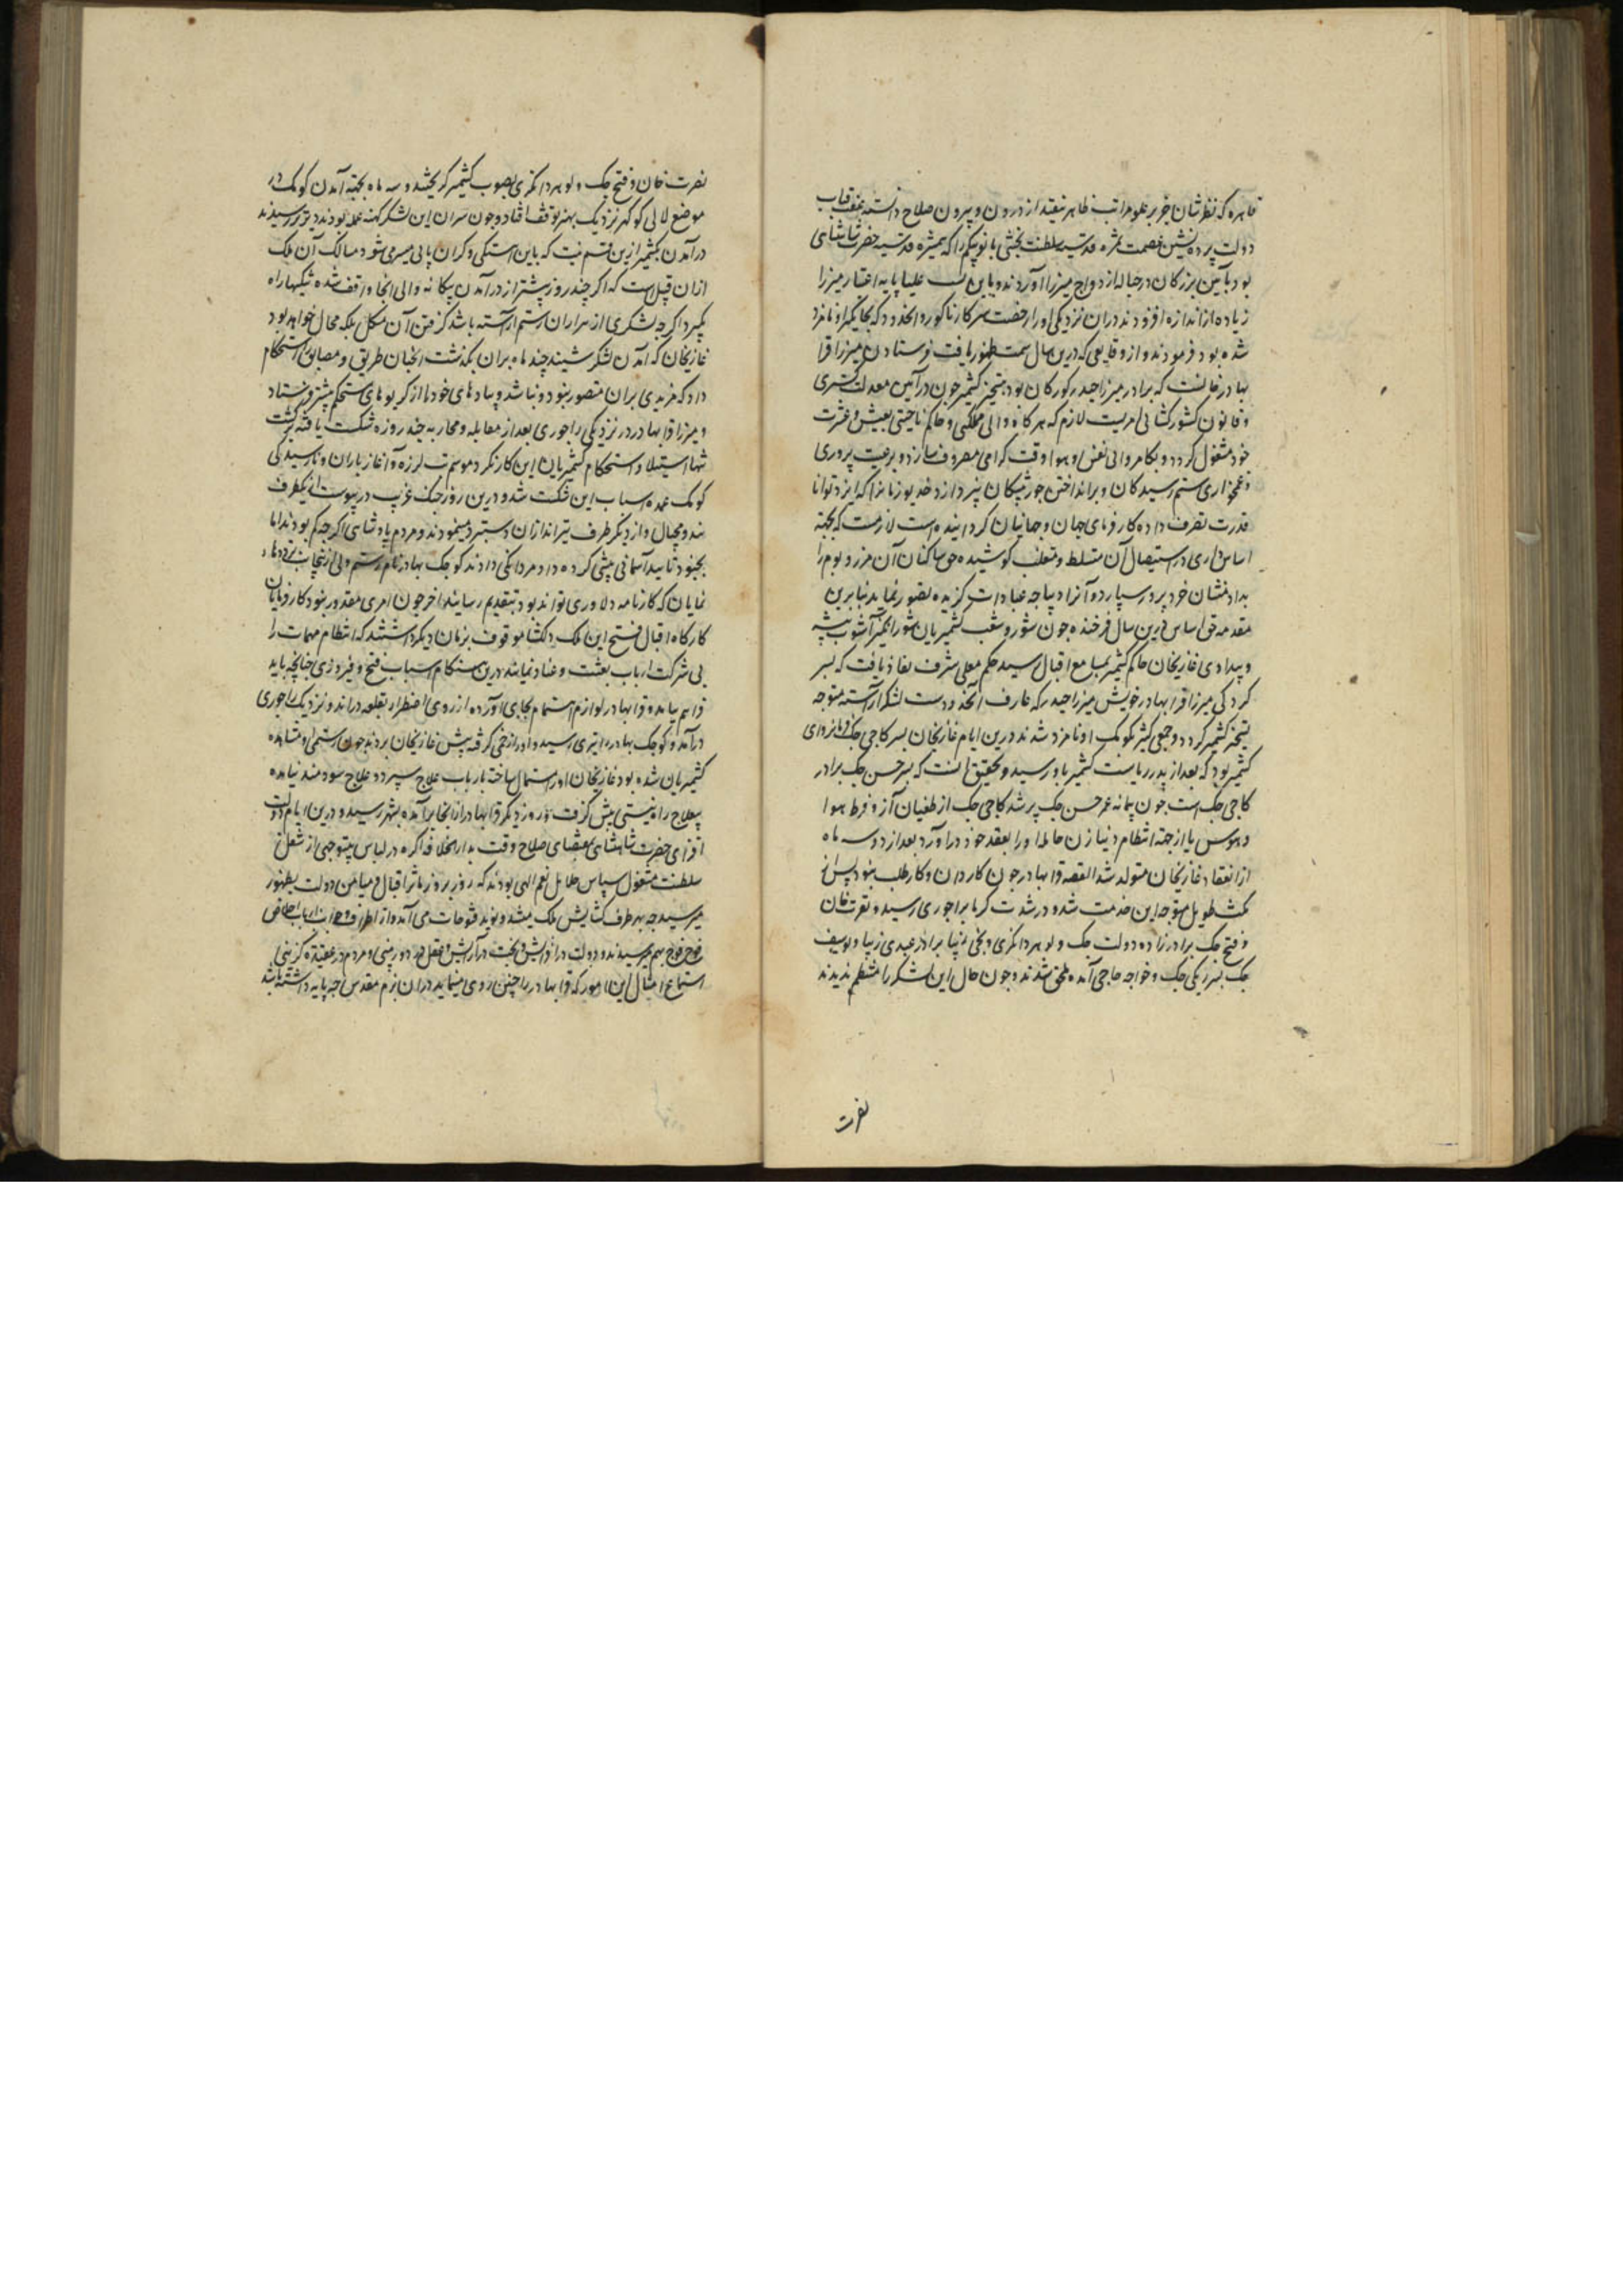 قاهره که نظر شان جز بر علو مراتب ظاهر نیفتد از درون و بیرون صلاح دانسته عفت قباب
دولت پرده نشین عصمت ثمره قدسیه سلطنت بخشی بانو بیگم را که همشیره قدسیه حضرت شاهنشاهی
بود بآیین بزرگان در حباله ازدواج میرزا آوردند و باین نسب علیا پایه اعتبار میرزا
زیاده از اندازه افزودند در ان نزدیکی او را رخصت سرکار ناگور و آنحدود که بجایگیر او نامزد
شده بود فرمودند و از وقایعی که درین سال سمت ظهور یافت فرستادن میرزا قرا
بهادر خانست که برادر میرزا حیدر گورکان بود بتسخیر کشمیر چون در آیین معدلت گستری
و قانون کشور کشائی امریست لازم که هرگاه والی مملکتی و حاکم ناحیتی بعیش و عشرت
خود مشغول گردد و بکامروائی نفس و هوا اوقات گرامی مصروف سازد و برعیت پروری
و غمخواری ستم رسیدگان و برانداختن جور پیشگان نپردازد خدیو زمانرا که ایزد توانا
قدرت تصرف داده کارفرمای جهان و جهانیان گردانیده است لازمست که بجهة
اساس داری در استیصال آن متسلط و متغلب کوشیده حق ساکنان آن مرز و بوم را
بداد منشان خرد پرور سپارد و آنرا دیباجه عبادات گزیده تصور نماید بنابرین
مقدمه حق اساس درین سال فرخنده چون شور و شغب کشمیریان شور انگیز آشوب پیشه
و بیدادی غازیخان حاکم کشمیر بمسامع اقبال رسید حکم معلی شرف نفاذ یافت که بسر
کردگی میرزا قرا بهادر خویش میرزا حیدر که عارف آنحدودست لشکر آراسته متوجه
تسخیر کشمیر گردد و جمعی کثیر بکومک او نامزد شدند درین ایام غازیخان پسر کاجی چک فرمانروای
کشمیر بود که بعد از پدر ریاست کشمیر باو رسید و تحقیق آنست که پسر حسن چک برادر
کاجی چک است چون پیمانه عمر حسن چک پر شد کاجی چک از طغیان آز و فرط هوا
و هوس یا از جهة انتظام دنیا زن حامله او را بعقد خود در آورد بعد از دو سه ماه
از انعقاد غازیخان متولد شد القصه قرا بهادر چون کاردان و کار طلب نبود پس از
مکث طویل متوجه این خدمت شد و در شدت گرما براجوری رسید و نصرت خان
و فتح چک برادرزاده دولت چک و لوهر دانکری و یوسف
چک پسر زیکی چک و خواجه حاجی آمده ملحق شدند و چون حال این لشکر را منتظم ندیدند
نصرت
نصرت خان و فتح چک و لوهر دانکری بصوب کشمیر گریختند و سه ماه بجهة آمدن کومک در
موضع لالی کوکهر نزدیک بهنبر توقف افتاد و چون سران این لشکر کهنه عمله بودند دیرتر رسیدند
در آمدن کشمیر ازین قسم نیست که باین آهستگی و گران پائی میسر می شود مسالک آن ملک
از ان قبیل است که اگر چند روز پیشتر از درآمدن بیگانه والی آنجا واقف شده تنگیها راه
بگیرد اگرچه لشکری از هزاران رستم آراسته باشد گرفتن آن مشکل بلکه محال خواهد بود
غازیخان که آمدن لشکر شنید چند ماه بران بگذشت آنچنان طریق و مضایق استحکام
داد که مزیدی بران متصور نبود و نباشد و پیادهای خود را از گریوهای مستحکم پیشتر فرستاد
و میرزا قرا بهادر در نزدیکی راجوری بعد از مقابله و محاربه چند روزه شکست یافته برگشت
تنها استیلا و استحکام کشمیریان این کار نکرد موسم تب لرزه و آغاز باران و نارسیدگی
کومک عمده اسباب این شکست شد و درین روز جنگ غریب در پیوست از یکطرف
بندوقچیان و از دیگر طرف تیراندازان دستبرد مینمودند و مردم پادشاهی اگرچه کم بودند اما
بجنود تایید آسمانی پشتی کرده داد مردانگی دادند کوچک بهادر نام رستم دلی ازینجانب ترددهاء
نمایان که کارنامه دلاوری تواند بود بتقدیم رسانید آخر چون امری مقدور نبود کارفرمایان
کارگاه اقبال فتح این ملک دلکشا موقوف بزمان دیگر داشتند که انتظام مهمات را
بی شرکت ارباب بغی و عناد نمایند درین هنگام اسباب فتح و فیروزی چنانچه باید
فراهم نیامد و قرا بهادر لوازم اهتمام بجای آورده از روی اضطرار بقلعه دراندو نزدیک راجوری
درآمد و کوچک بهادر را تیری رسید و او را زخمی گرفته پیش غازیخان بردند چون رستمی او مشاهده
کشمیریان شده بود غازیخان او را استمالت ساخته بارباب علاج سپرد و علاج سودمند نیامده
بعلاج راه نیستی پیش گرفت و روز دیگر قرا بهادر از آنجا برآمده بنوشهره رسید و درین ایام دولت
افزای حضرت شاهنشاهی بمقتضای صلاح وقت بدارالخلافه آگره در لباس بیتوجهی از شغل
سلطنت مشغول سپاس جلایل نعم الهی بودند که روز بروز مآثر اقبال و میامن دولت بظهور
میرسید چه بهر طرف کشایش ملک میشد و نوید فتوحات می آمد و از اطراف و جوانب ارباب اخلاص
فوج فوج بهم میرسیدند و دولت در افزایش و بخت در آرایش و عقل در دوربینی و مردم در عقیده گزینی
استماع امثال این امور که قرا بهادر را چنین روی مینماید در ان بزم مقدس چه پایه داشته باشد